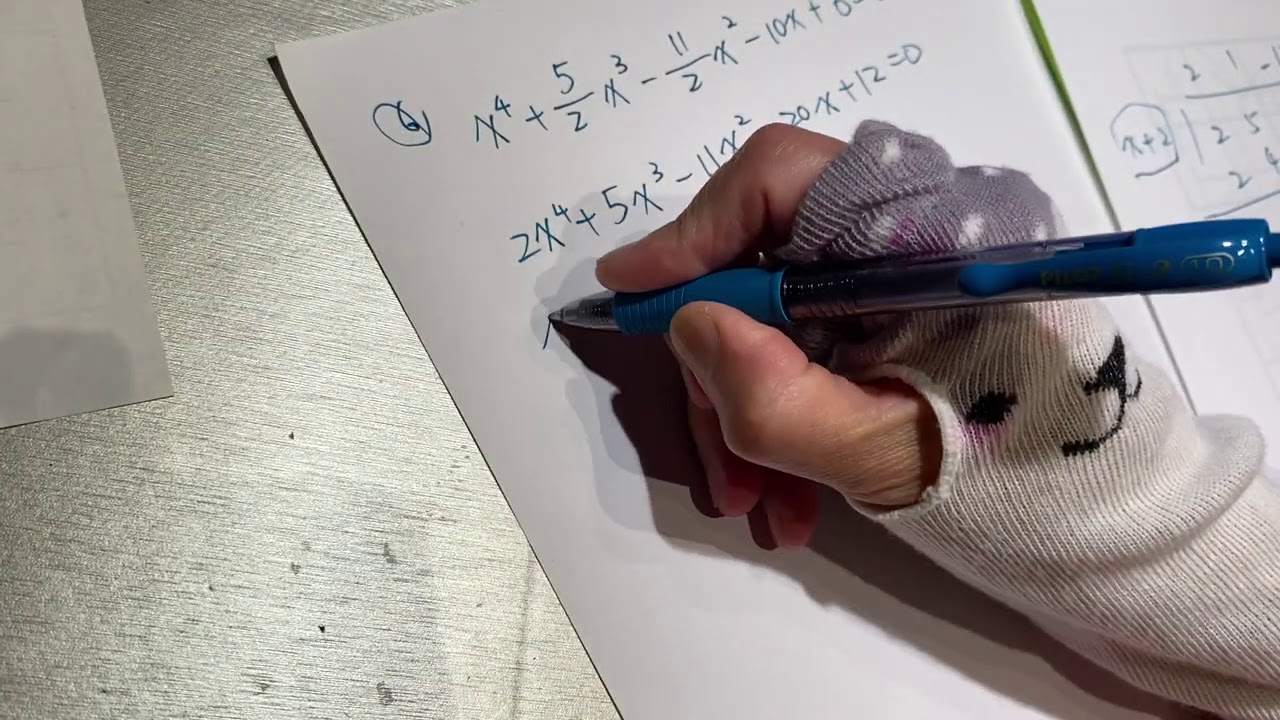 ⑥ x⁴ + 5/2 x³ - 11/2 x² - 10x +
2x⁴ + 5x³ - 11x² 20x + 12 = 0
2 1 -1
x+2 | 2 5
2 4